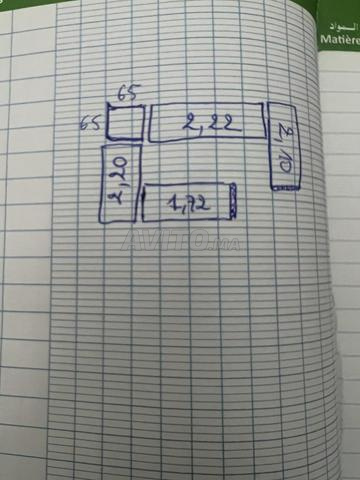 المـــواد
Matière
65
65
2,22
2,10
2,20
1,72
AVITO.ma